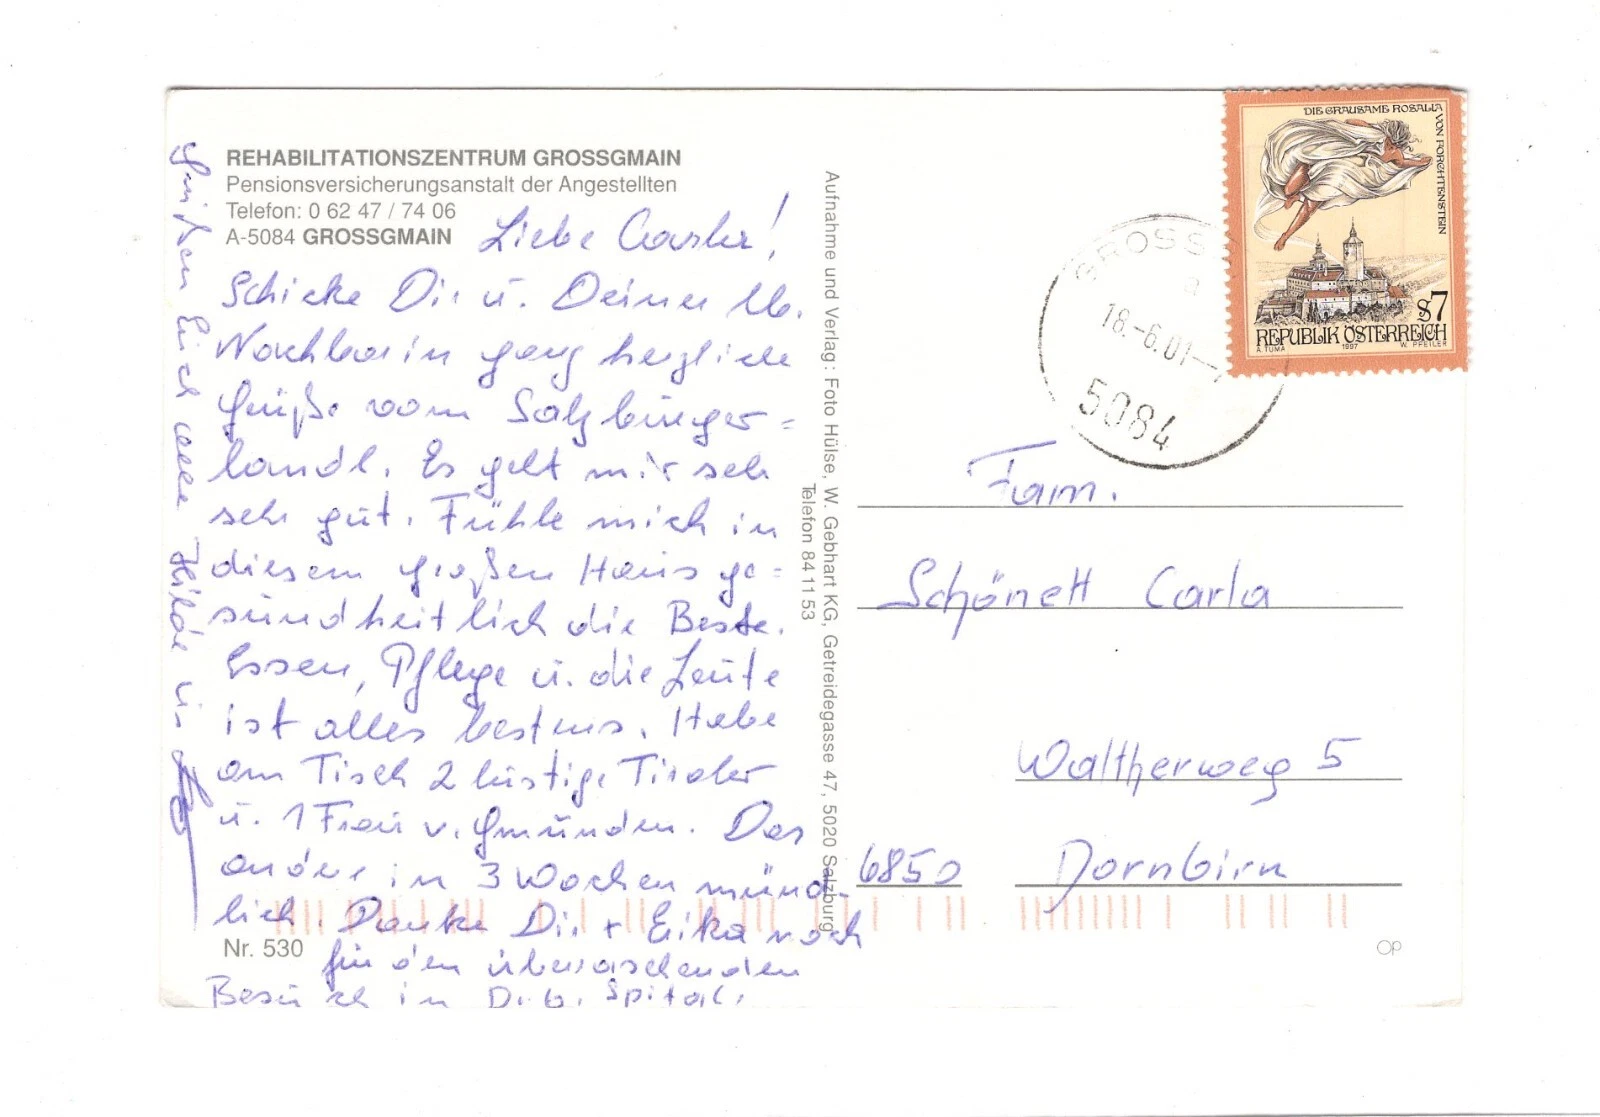 REHABILITATIONSZENTRUM GROSSGMAIN
Pensionsversicherungsanstalt der Angestellten
Telefon: 0 62 47 / 74 06
A-5084 GROSSGMAIN
Liebe Carla!
Schicke Dir u. Deiner lb.
Nachbarin ganz herzliche
Grüße vom Salzburger=
landl. Es geht mir seh
sehr gut. Fühle mich in
diesem großen Haus ge=
sundheitlich die Beste.
Essen, Pflege u. die Leute
ist alles bestens. Habe
am Tisch 2 lustige Tiroler
u. 1 Frau v. Gmunden. Das
andere in 3 Wochen münd-
lich. Danke Dir + Erika noch
für den überraschenden
Besuch in D.b. Spital.
Grüßen Euch alle Hilde u.
Nr. 530
Aufnahme und Verlag: Foto Hülse, W. Gebhart KG, Getreidegasse 47, 5020 Salzburg
Telefon 84 11 53
GROSS
a
18.-6.01-
5084
DIE GRAUSAME ROSALIA
VON FORCHTENSTEIN
S7
REPUBLIK ÖSTERREICH
A. TUMA 1997 W. PFEILER
Fam.
Schönett Carla
Waltherweg 5
6850 Dornbirn
OP